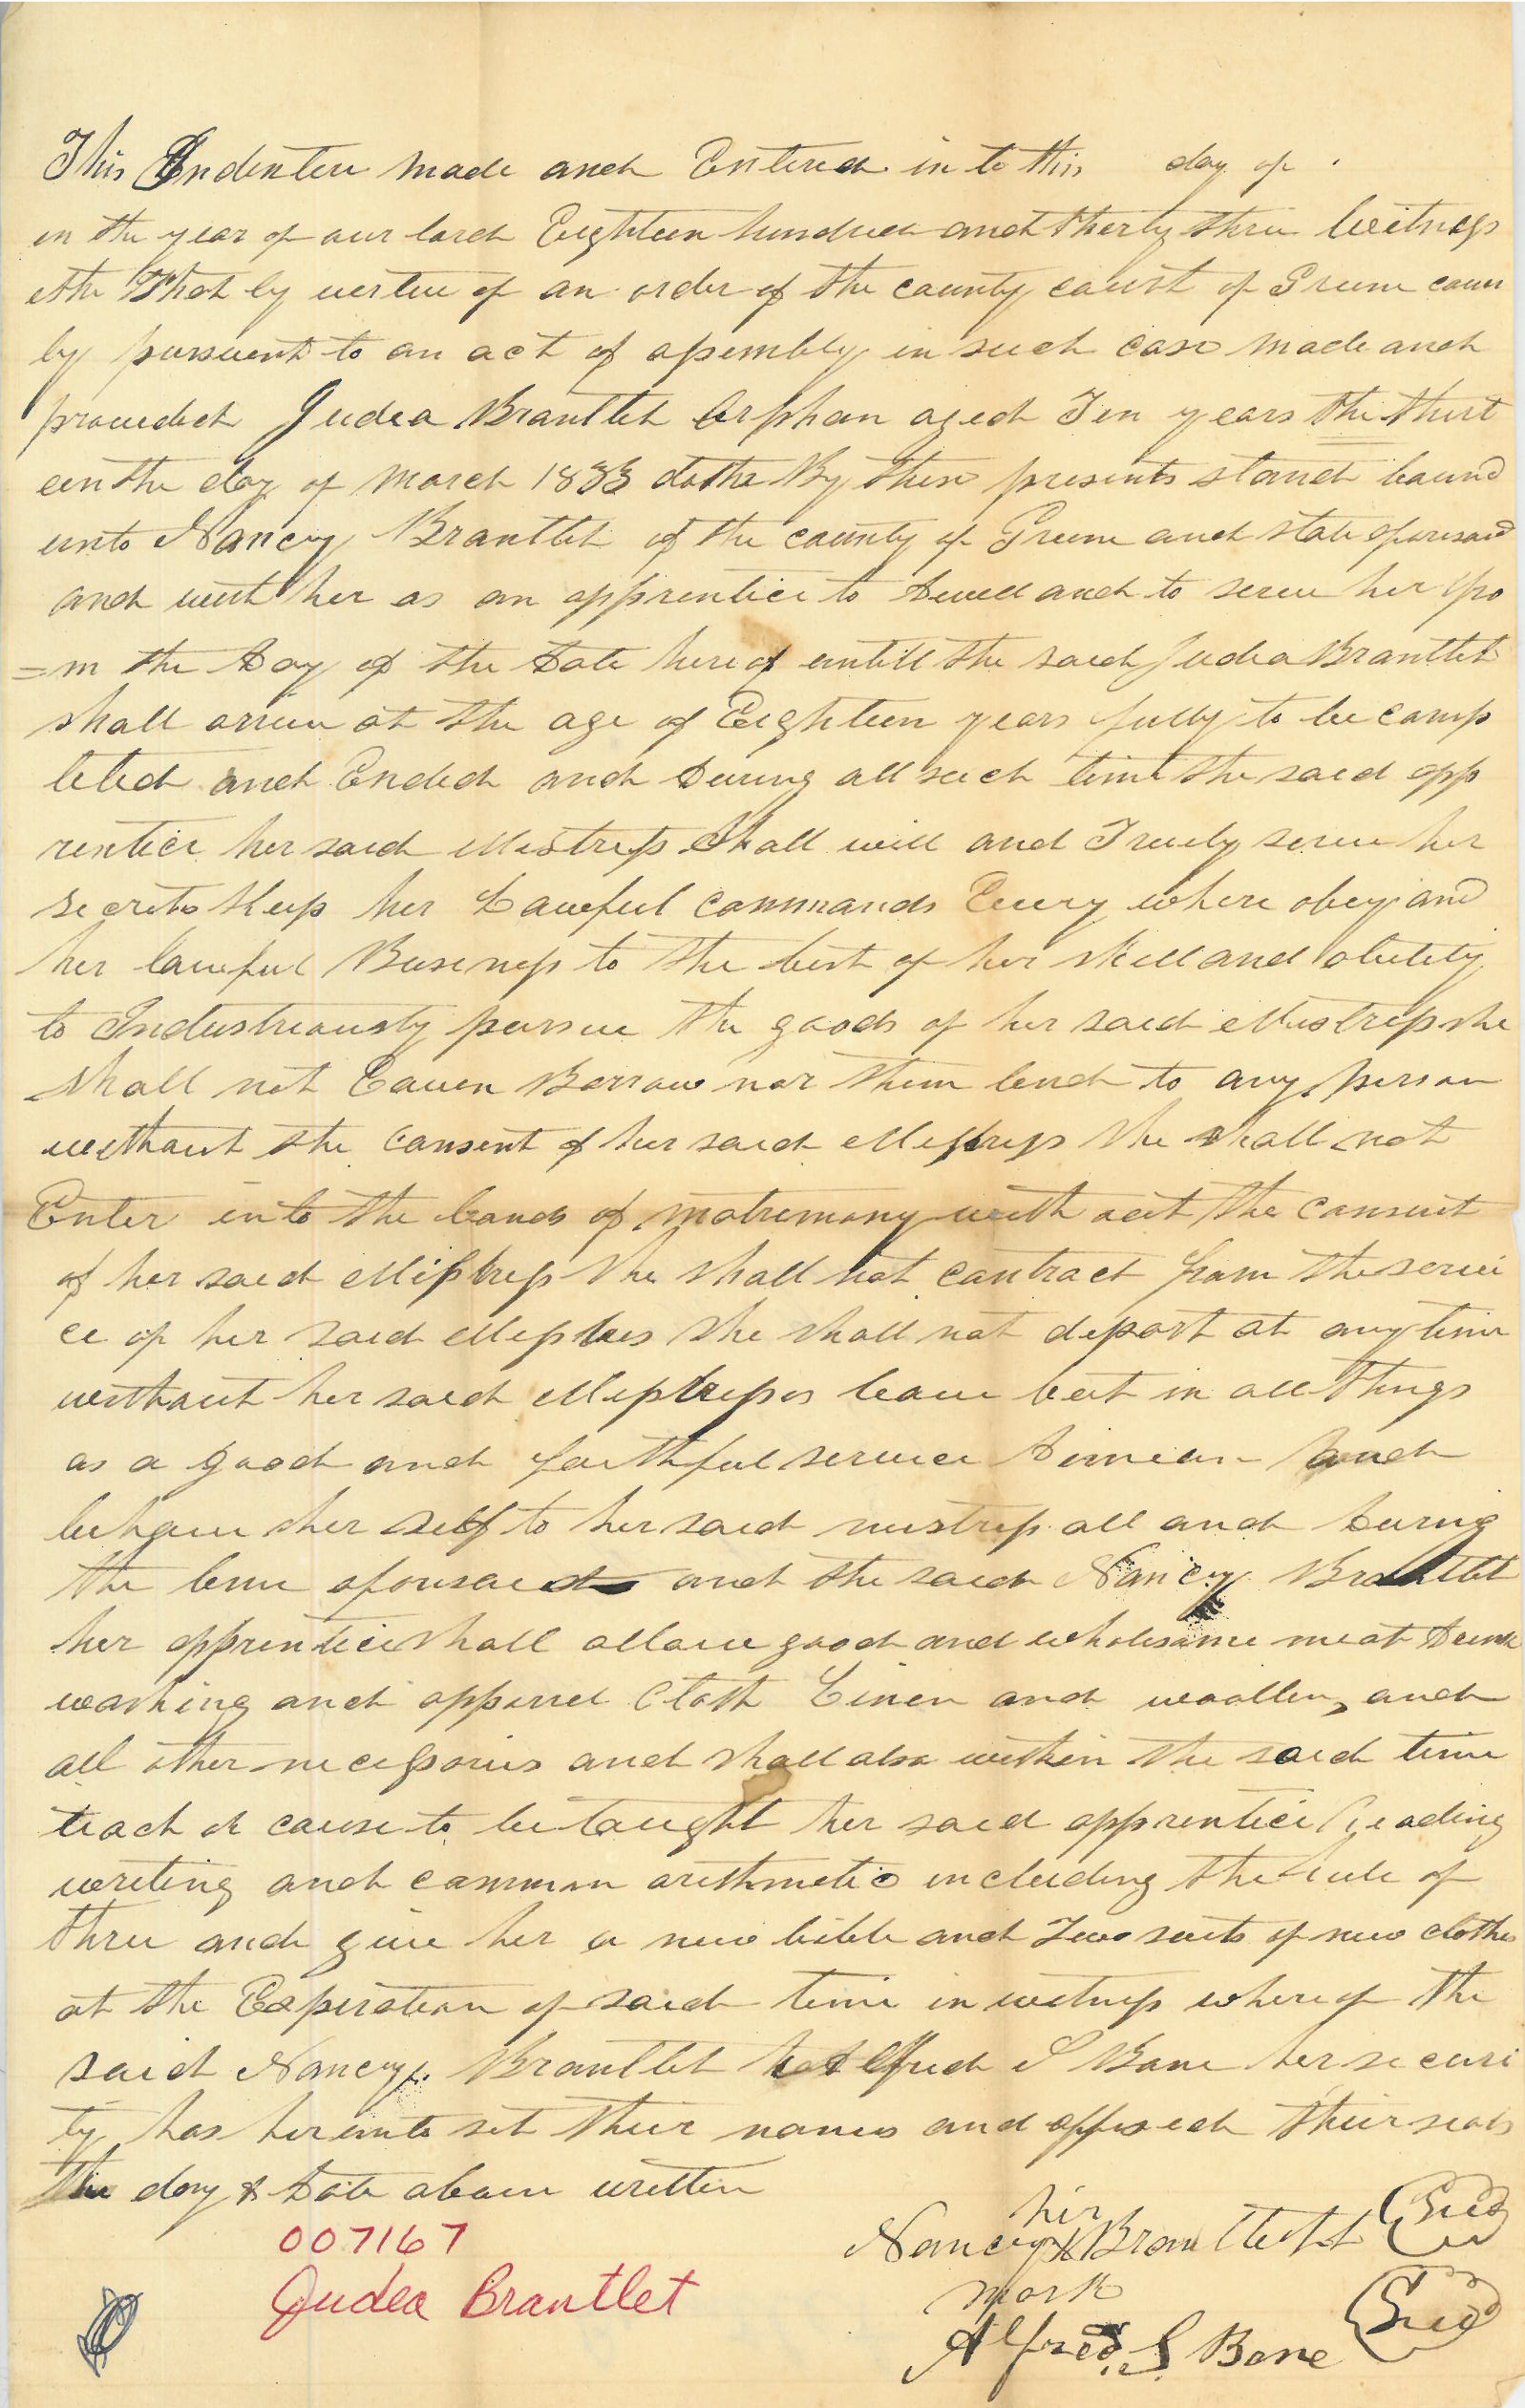 This Indenteu made and Entered in to this day of
in the year of our lord Eighteen hundred and therty three Witness
ethe That by vertue of an order of the county court of Green coun
ty pursuent to an act of assembly in such case made and
proveded Judea Brantlet Orphan aged Ten years the thirt
eenthe day of March 1833 dothe By these presents stand bound
unto Nancy Brantlet of the county of Green and state aforesaid
and with her as an apprentice to dwell and to serve her fro
=m the Day of the Date hereof untill the said Judea Brantlet
shall arive at the age of Eighteen years fully to be comp
leted and Ended and During all such time the said app
rentice her said Mistress Shall will and Truely serve her
secrets Keep her Lawful commands Every where obey and
her lawful Business to the best of her skill and abelety
to Industreously persue the goods of her said Mistress she
shall not Borrow nor them lend to any person
without the consent of her said Misstress she shall not
Enter into the bands of matremony with out the consent
of her said Misstress she shall not contract from the servi
ce of her said Misstres she shall not depart at any time
without her said Misstresses leave but in all things
as a good and faithful service Dimean and
behave her self to her said mistress all and During
the time aforesaid and the said Nancy Brantlet
her apprentice shall allow good and wholesome meat Drink
washing and apparel Cloth Linen and woollen, and
all other necessories and shall also within the said time
teach or cause to be taught her said apprentice Reading
writing and common arithmetic including the Rule of
three and give her a new bible and Two suits of new clothes
at the Experation of said time in witness whereof the
said Nancy Brantlet Alfred S Bone her securi
ty has hereunto set their names and affixed their seals
the day & Date above written
her
Nancy X Brantlett Seal
mark
Alfred S Bone Seal
007167
Judea Brantlet